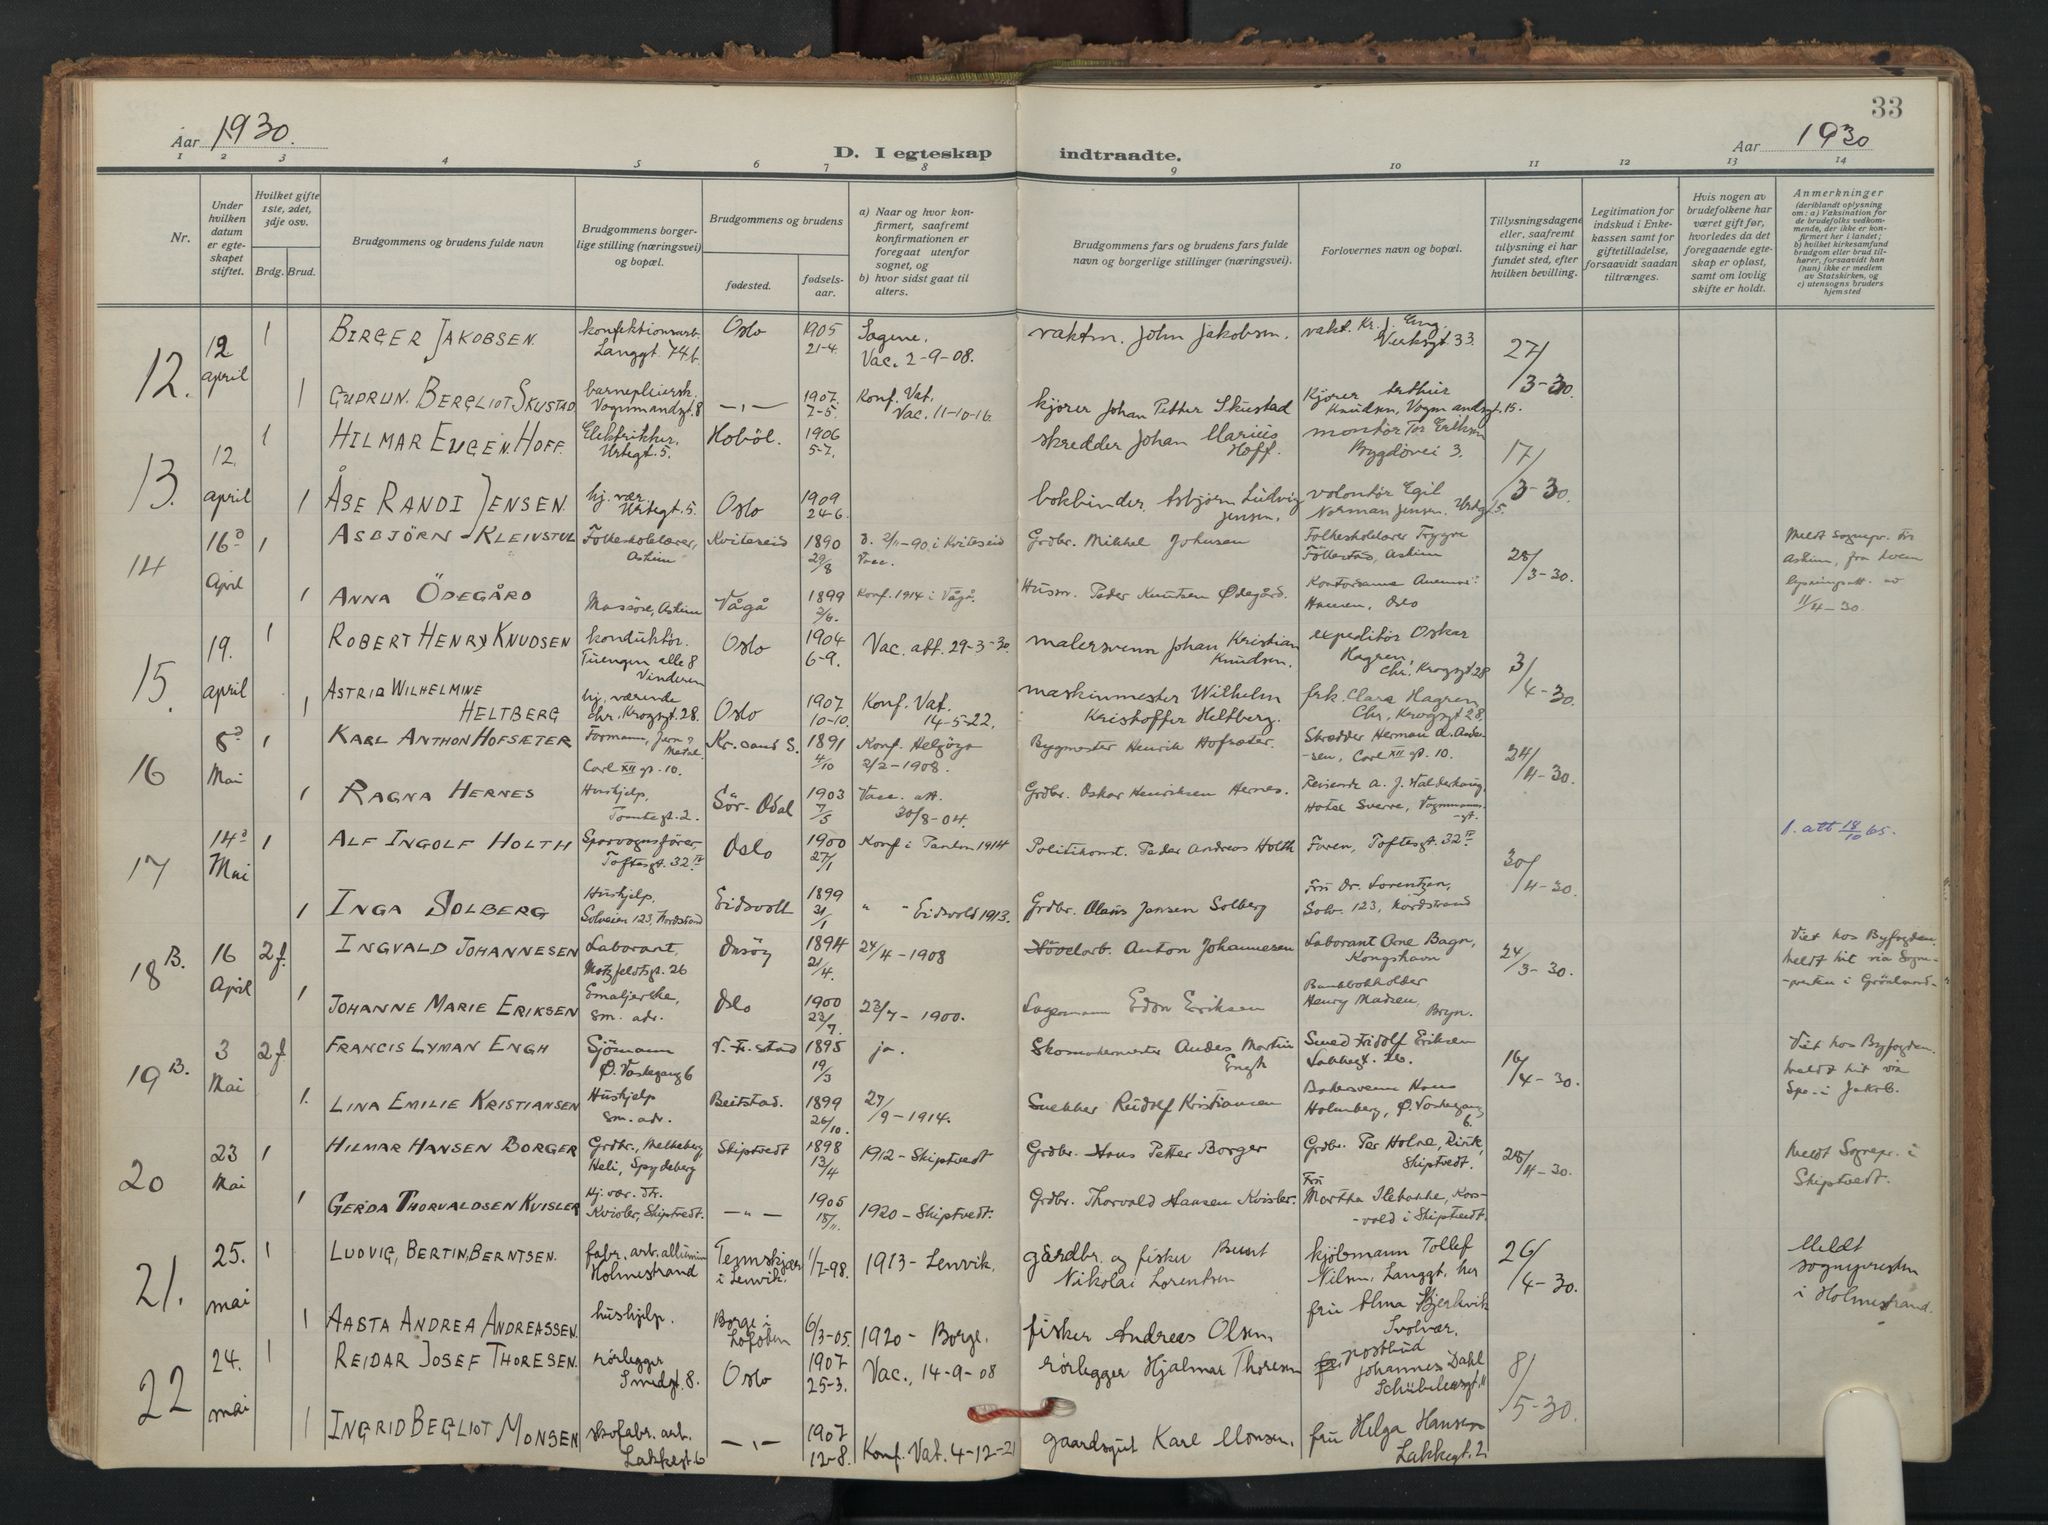 33
Aar 1930.
D. I egteskap indtraadte.
Aar 1930
1 2 3 4 5 6 7 8 9 10 11 12 13 14
Nr.
Under hvilken datum er egteskapet stiftet.
Hvilket gifte 1ste, 2det, 3dje osv.
Brdg. Brud.
Brudgommens og brudens fulde navn
Brudgommens borgerlige stilling (næringsvei) og bopæl.
Brudgommens og brudens
fødested.
fødselsaar.
a) Naar og hvor konfirmert, saafremt konfirmationen er foregaat utenfor sognet, og
b) hvor sidst gaat til alters.
Brudgommens fars og brudens fars fulde navn og borgerlige stillinger (næringsvei).
Forlovernes navn og bopæl.
Tillysningsdagene eller, saafremt tillysning ei har fundet sted, efter hvilken bevilling.
Legitimation for indskud i Enkekassen samt for giftetilladelse, forsaavidt saadan tiltrænges.
Hvis nogen av brudefolkene har været gift før, hvorledes da det foregaaende egteskap er opløst, samt om lovlig skifte er holdt.
Anmerkninger
(deriblandt oplysning om: a) Vaksination for de brudefolks vedkommende, der ikke er konfirmert her i landet; b) hvilket kirkesamfund brudgom eller brud tilhører, forsaavidt han (hun) ikke er medlem av Statskirken, og c) utensogns bruders hjemsted
12. 12 april 1 BIRGER JAKOBSEN. konfektionsarb. Langgt. 74b. Oslo 1905 21-4. Sagene. Vac. 2-9-08. vaktm. John Jakobsen. vakt. Kr. J. Eng. Verksgt. 33. 27/3-30.
1 GUDRUN. BERGLIOT SKUSTAD barnepleiersk. Vognmandsgt. 8 -"- 1907. 7-5. Konf. Vat. Vac. 11-10-16. kjører Johan Petter Skustad Kjører Arthur Knudsen, Vognmandsgt. 15.
13. 12. april 1 HILMAR EUGEN. HOFF. Elektriker. Urtegt. 5. Hoböl. 1906 5-7. skredder Johan Marius Hoff. montør Tor Eriksen Bygdøvei 3. 17/3-30.
1 ÅSE RANDI JENSEN hj. vær. Urtegt. 5. Oslo 1909 24-6. bokbinder Asbjørn Ludvig Jensen. volontør Egil Norman Jensen. Urtegt. 5.
14 16d April 1 ASBJÖRN KLEIVSTUL Folkeskolelærer, Askim Kviteseid 1890 29/8 d. 2/11-90 i Kviteseid Vacc. Grdbr. Mikkel Johnsen Folkeskolelærer Trygve Askim 28/3-30. Meldt sognepr. til Askim, fra hvem lysningsatt. av 11/4-30.
1 ANNA ÖDEGÅRD Massöse, Askim Vågå 1899 2/6. Konf. 1914 i Vågå. Husm. Peder Knutsen Ødegård. Hansen, Oslo
15. 19. april 1 ROBERT HENRY KNUDSEN konduktör. Tuengen alle 8 Vinderen Oslo 1904 6-9. Vac. att. 29-3-30. malersvenn Johan Kristian Knudsen. expeditør Oskar Hagren, Chr. Krogsgt 28 3/4-30.
1 ASTRID WILHELMINE HELTBERG hj. værende Chr. Krogsgt. 28. Oslo 1907 10-10. Konf. Vat. 14-5-22. maskinmester Wilhelm Kristoffer Heltberg. frk. Clara Hagren, Chr. Krogsgt 28.
16 8d Mai 1 KARL ANTHON HOFSÆTER Formann, Jern & Metal. Carl XII gt. 10. Kr.sand S. 1891 4/10 Konf. Helgöya 2/2-1908. Bygmester Henrik Hofsæter. Skrædder Herman A. Andersen, Carl XII gt. 10. 24/4-30.
1 RAGNA HERNES Hushjelp, Tomtegt. 2. Sör-Odal 1903 7/5 Vacc. att. 30/8-04. Grdbr. Oskar Henriksen Hernes. Reisende A. J. Valderhaug, Hotel Sverre, Vognmannsgt.
17 14d Mai 1 ALF INGOLF HOLTH Sporvognsfører, Toftesgt. 32 IV Oslo 1900 27/1 Konf i 1914 Politikonst. Peder Andreas Holth Faren, Toftesgt. 32 IV 30/4-30. 1. att 18/10 65.
1 INGA SOLBERG Hushjelp, Solveien 123, Nordstrand Eidsvoll 1899 31/1 " " Eidsvold 1913. Grdbr. Olaus Jansen Solberg Fru Dr. Lorentzen, Solv. 123, Nordstrand
18 B. 16 April 2 f. INGVALD JOHANNESEN Laborant, Motzfeldtsgt. 26 Onsöy 1894 21/4. 24/4-1908 Hövelarb. Anton Johannesen Laborant Arne Bagn, Kongshavn 24/3-30. Viet hos Byfogden. Meldt hit via Sognepresten i Grönland
1 JOHANNE MARIE ERIKSEN Emaljerske, sm. adr. Oslo 1900 23/7. 23/7-1900. Lagermann Edon Eriksen Bankbokholder Henry Madsen, Bryn.
19 B. 3 Mai 2 f. FRANCIS LYMAN ENGH Sjömann Ø. Vaskegang 6 V. Fr.stad 1895 19/3 ja. Skomakermester Anders Martin Engh Smed Fridolf Eriksen Lakkegt. 26. 16/4-30. Viet hos Byfogden. Meldt hit via Spr. i Jakob.
1. LINA EMILIE KRISTIANSEN Hushjelp sm. adr. Beitstad. 1899 26/10. 27/9-1914. Snekker Rudolf Kristiansen Bakersvenn Hans Holmberg, Ø. Vaskegang 6.
20 23 Mai 1 HILMAR HANSEN BORGER Grdbr., Melleberg Heli, Spydeberg Skiptvedt 1898 13/4 1912-Skiptvedt Grdbr. Hans Petter Borger Grdbr. Per Holne, Skiptvedt. 25/4-30. Meldt Sognepr. i Skiptvedt.
1 GERDA THORVALDSEN KVISLER Hj. vær. dtr. Kvisler, Skiptvedt. -"- 1905 18/11. 1920-Skiptvedt. Grdbr. Thorvald Hansen Kvisler. Fru Martha Ilebakke, Korsvold i Skiptvedt.
21. 25. mai 1 LUDVIG, BERTIN, BERNTSEN. fabr. arb. Holmestrand i Lenvik. 1/7-98. 1913-Lenvik. gårdbr. og fisker Bernt Nikolai Lorentsen kjöbmann Tollef Nilsen, Langgt. her 26/4-30. Meldt sognepresten i Holmestrand.
1 AASTA ANDREA ANDREASSEN. hushjelp. Borge i Lofoten 6/3-05. 1920-Borge. fisker Andreas Olsen. fru Alma Bjerkvik Svolvær.
22 24. mai 1 REIDAR JOSEF THORESEN. rörlegger Smedgt. 8. Oslo 1907 25-3. Vac., 14-9-08 rörlegger Hjalmar Thoresen postbud Johannes Dahl Schübelersgt. 11 8/5-30.
1 INGRID BEGLIOT MONSEN skofabr. arb. Lakkegt. 6 -"- 1907 12-8. Konf. Vat. 4-12-21 gaardsgut Karl Monsen. fru Helga Hansen Lakkegt. 2